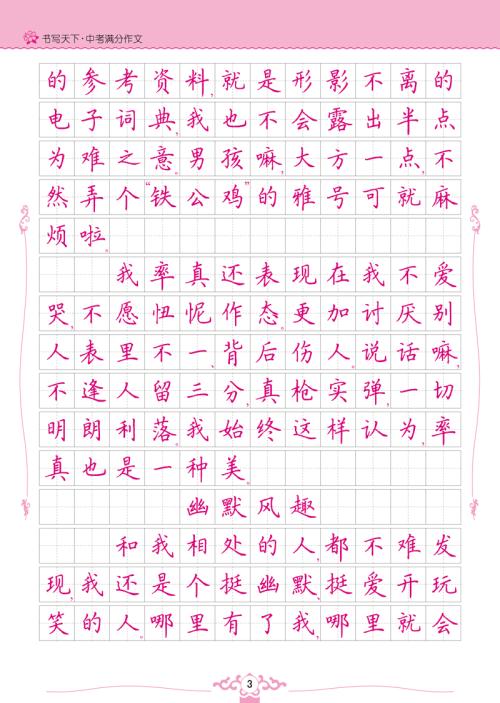 书写天下·中考满分作文
的参考资料,就是形影不离的
电子词典,我也不会露出半点
为难之意。男孩嘛,大方一点,不
然弄个“铁公鸡”的雅号可就麻
烦啦。
我率真还表现在我不爱
哭,不愿忸怩作态。更加讨厌别
人表里不一、背后伤人。说话嘛,
不逢人留三分,真枪实弹,一切
明朗利落。我始终这样认为,率
真也是一种美。
幽默风趣
和我相处的人,都不难发
现,我还是个挺幽默,挺爱开玩
笑的人。哪里有了我,哪里就会
3